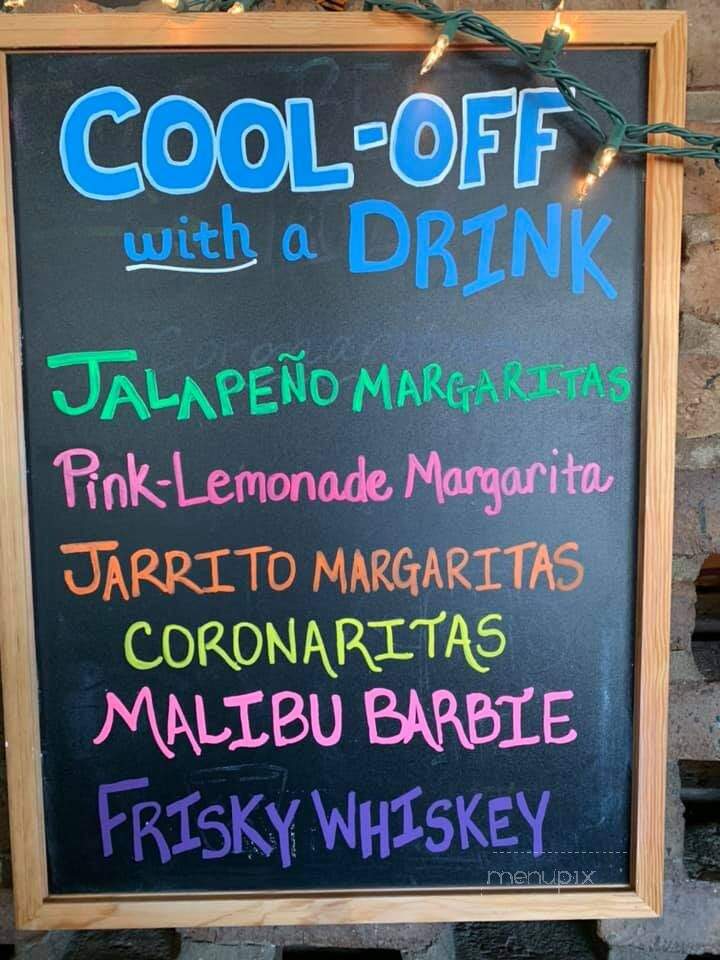 COOL-OFF
with a DRINK
JALAPEÑO MARGARITAS
Pink-Lemonade Margarita
JARRITO MARGARITAS
CORONARITAS
MALIBU BARBIE
FRISKY WHISKEY
menupix